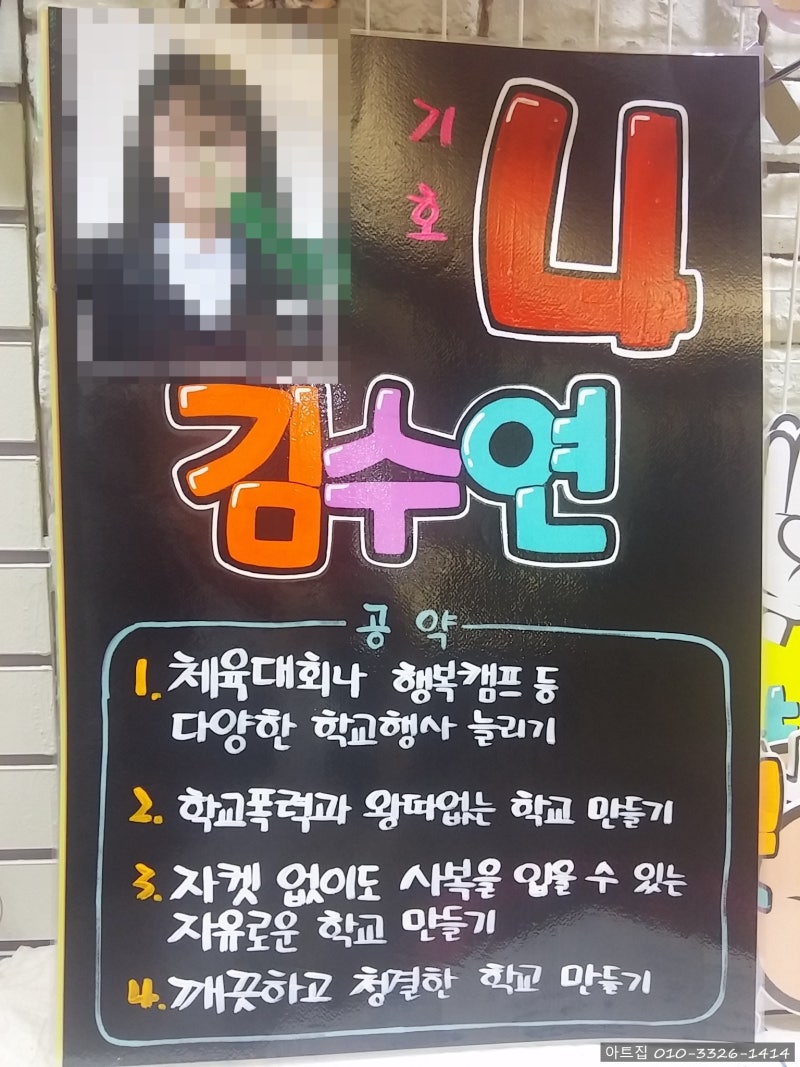 기호 4
김수연
공약
1. 체육대회나 행복캠프 등
다양한 학교행사 늘리기
2. 학교폭력과 왕따없는 학교 만들기
3. 자켓 없이도 사복을 입을 수 있는
자유로운 학교 만들기
4. 깨끗하고 청결한 학교 만들기
아트집 010-3326-1414